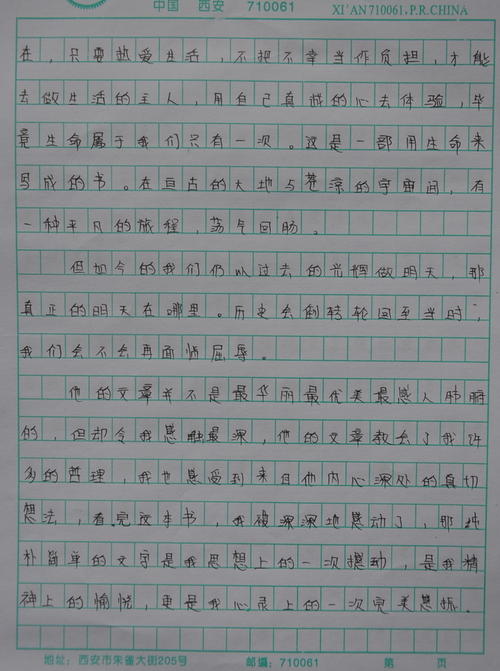 中国 西安 710061 XI'AN 710061, P.R.CHINA
在，只要热爱生活，不把不幸当作负担，才能
去做生活的主人，用自己真诚的心去体验，毕
竟生命属于我们只有一次。这是一部用生命来
写成的书。在亘古的大地与苍凉的宇宙间，有
一种平凡的旅程，荡气回肠。
但如今的我们仍以过去的光辉做明天，那
真正的明天在哪里。历史会倒转轮回至当时，
我们会不会再面临屈辱。
他的文章并不是最华丽最优美最感人肺腑
的，但却令我感触最深，他的文章教会了我许
多的哲理，我也感受到来自他内心深处的真切
想法，看完这本书，我被深深地感动了，那种
朴简单的文字是我思想上的一次撼动，是我精
神上的愉悦，更是我心灵上的一次完美感振。
地址：西安市朱雀大街205号 邮编：710061 第 页